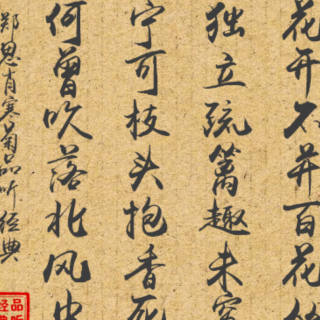 花开不并百花丛
独立疏篱趣未穷
宁可枝头抱香死
何曾吹落北风中
郑思肖寒菊品听经典
品听经典